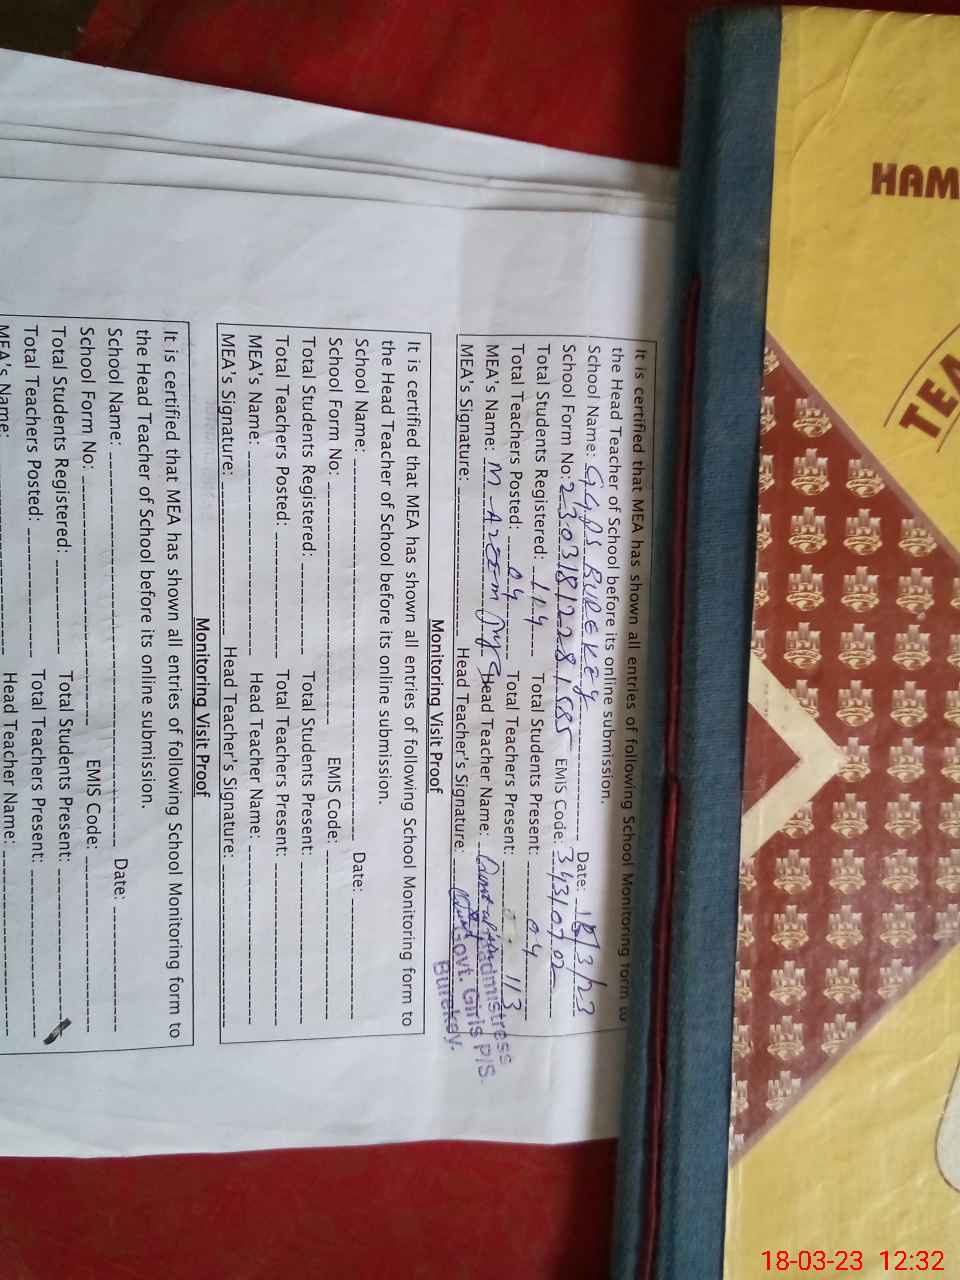 It is certified that MEA has shown all entries of following School Monitoring form to
the Head Teacher of School before its online submission.
School Name: GGPS BUREKEY Date: 18/3/23
School Form No: EMIS Code: 34310702
Total Students Registered: 114 Total Students Present: 04
Total Teachers Posted: 04 Total Teachers Present: 113
MEA's Name: M-Azeem Head Teacher Name:
MEA's Signature: Head Teacher's Signature:
Headmistress
Govt. Girls P/S.
Burekey.
Monitoring Visit Proof
It is certified that MEA has shown all entries of following School Monitoring form to
the Head Teacher of School before its online submission.
School Name: Date:
School Form No: EMIS Code:
Total Students Registered: Total Students Present:
Total Teachers Posted: Total Teachers Present:
MEA's Name: Head Teacher Name:
MEA's Signature: Head Teacher's Signature:
Monitoring Visit Proof
It is certified that MEA has shown all entries of following School Monitoring form to
the Head Teacher of School before its online submission.
School Name: Date:
School Form No: EMIS Code:
Total Students Registered: Total Students Present:
Total Teachers Posted: Total Teachers Present:
MEA's Name: Head Teacher Name:
HAM
TEA
18-03-23 12:32